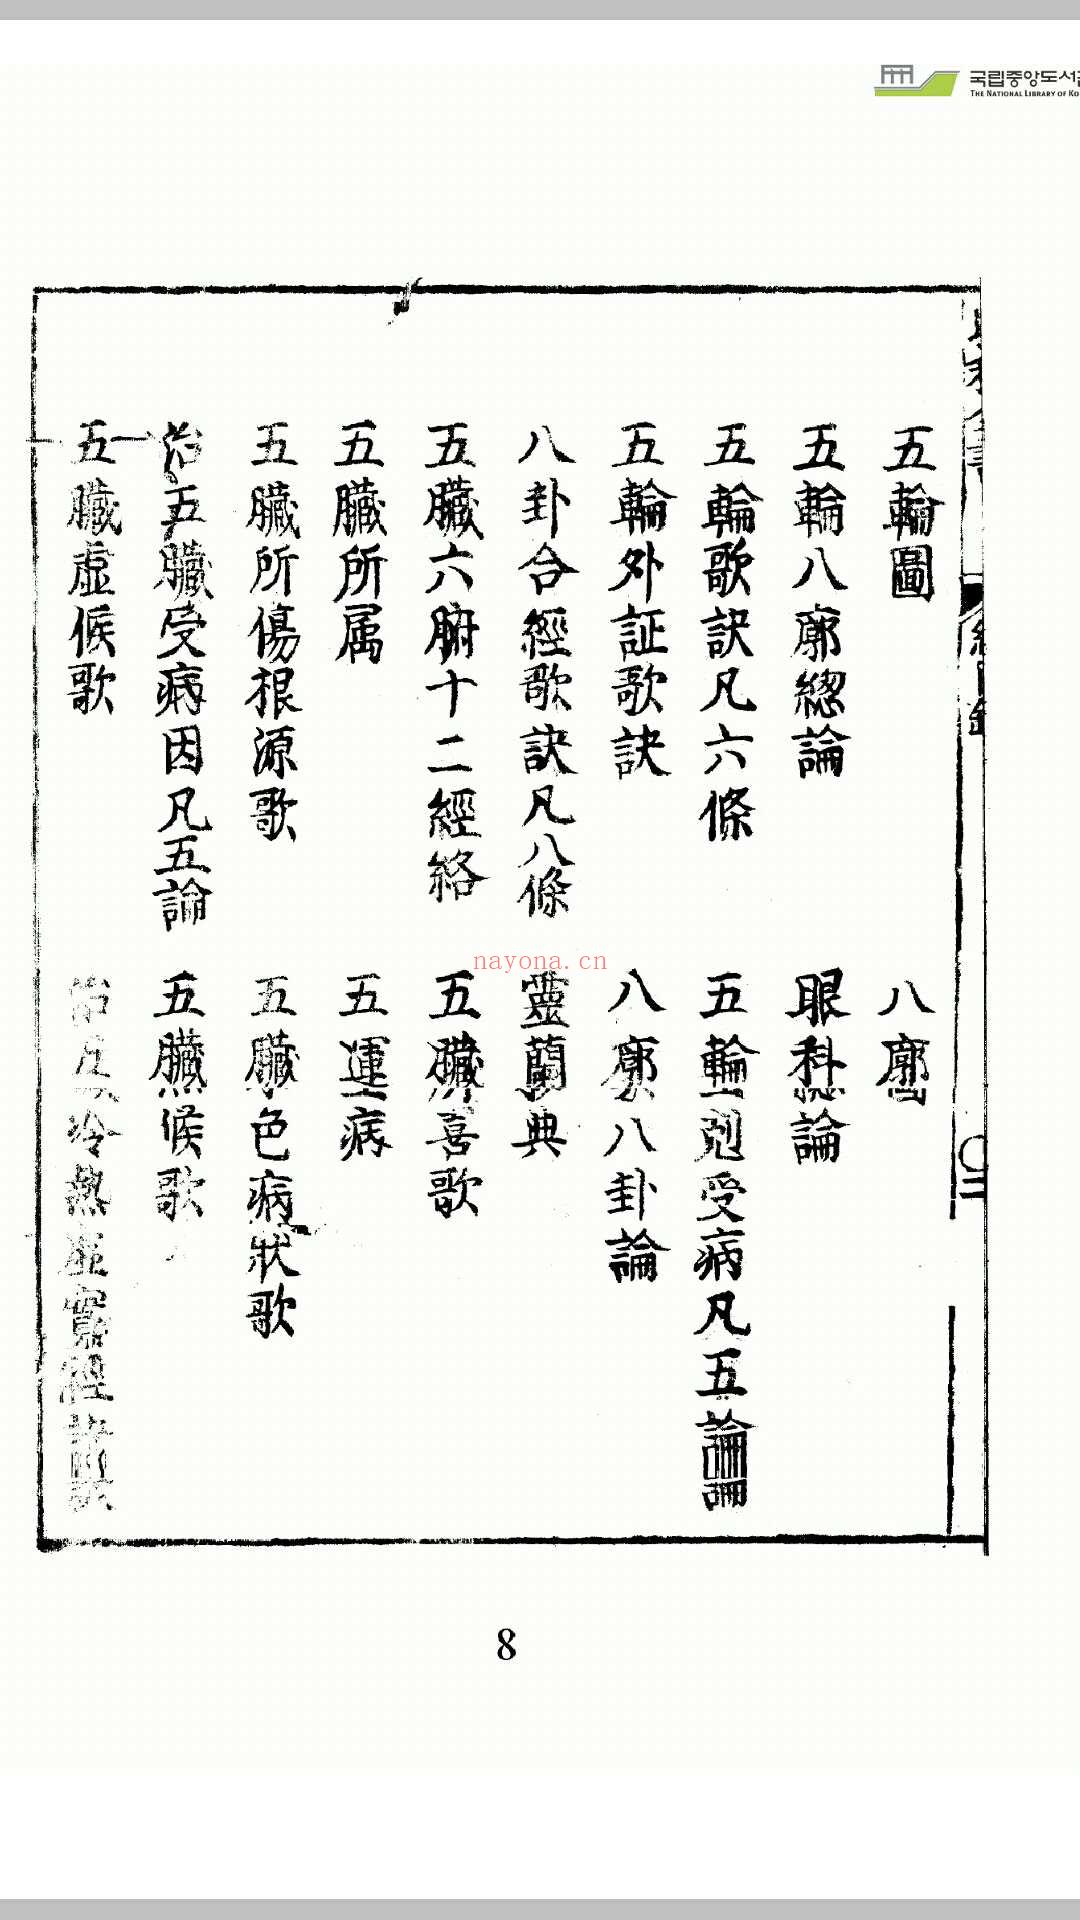 국립중앙도서관
THE NATIONAL LIBRARY OF KO
五輪圖
八廓圖
五輪八廓總論
眼科總論
五輪歌訣凡六條
五輪主剋受病凡五論
五輪外証歌訣
八廓八卦論
八卦合經歌訣凡八條
靈蘭典
五臟六腑十二經絡
五臟所喜歌
五臟所属
五運主病
五臟所傷根源歌
五臟察色病狀歌
治五臟受病因凡五論
五臟熱候歌
五臟虛候歌
治五臟冷熱虛實經
nayona.cn
8